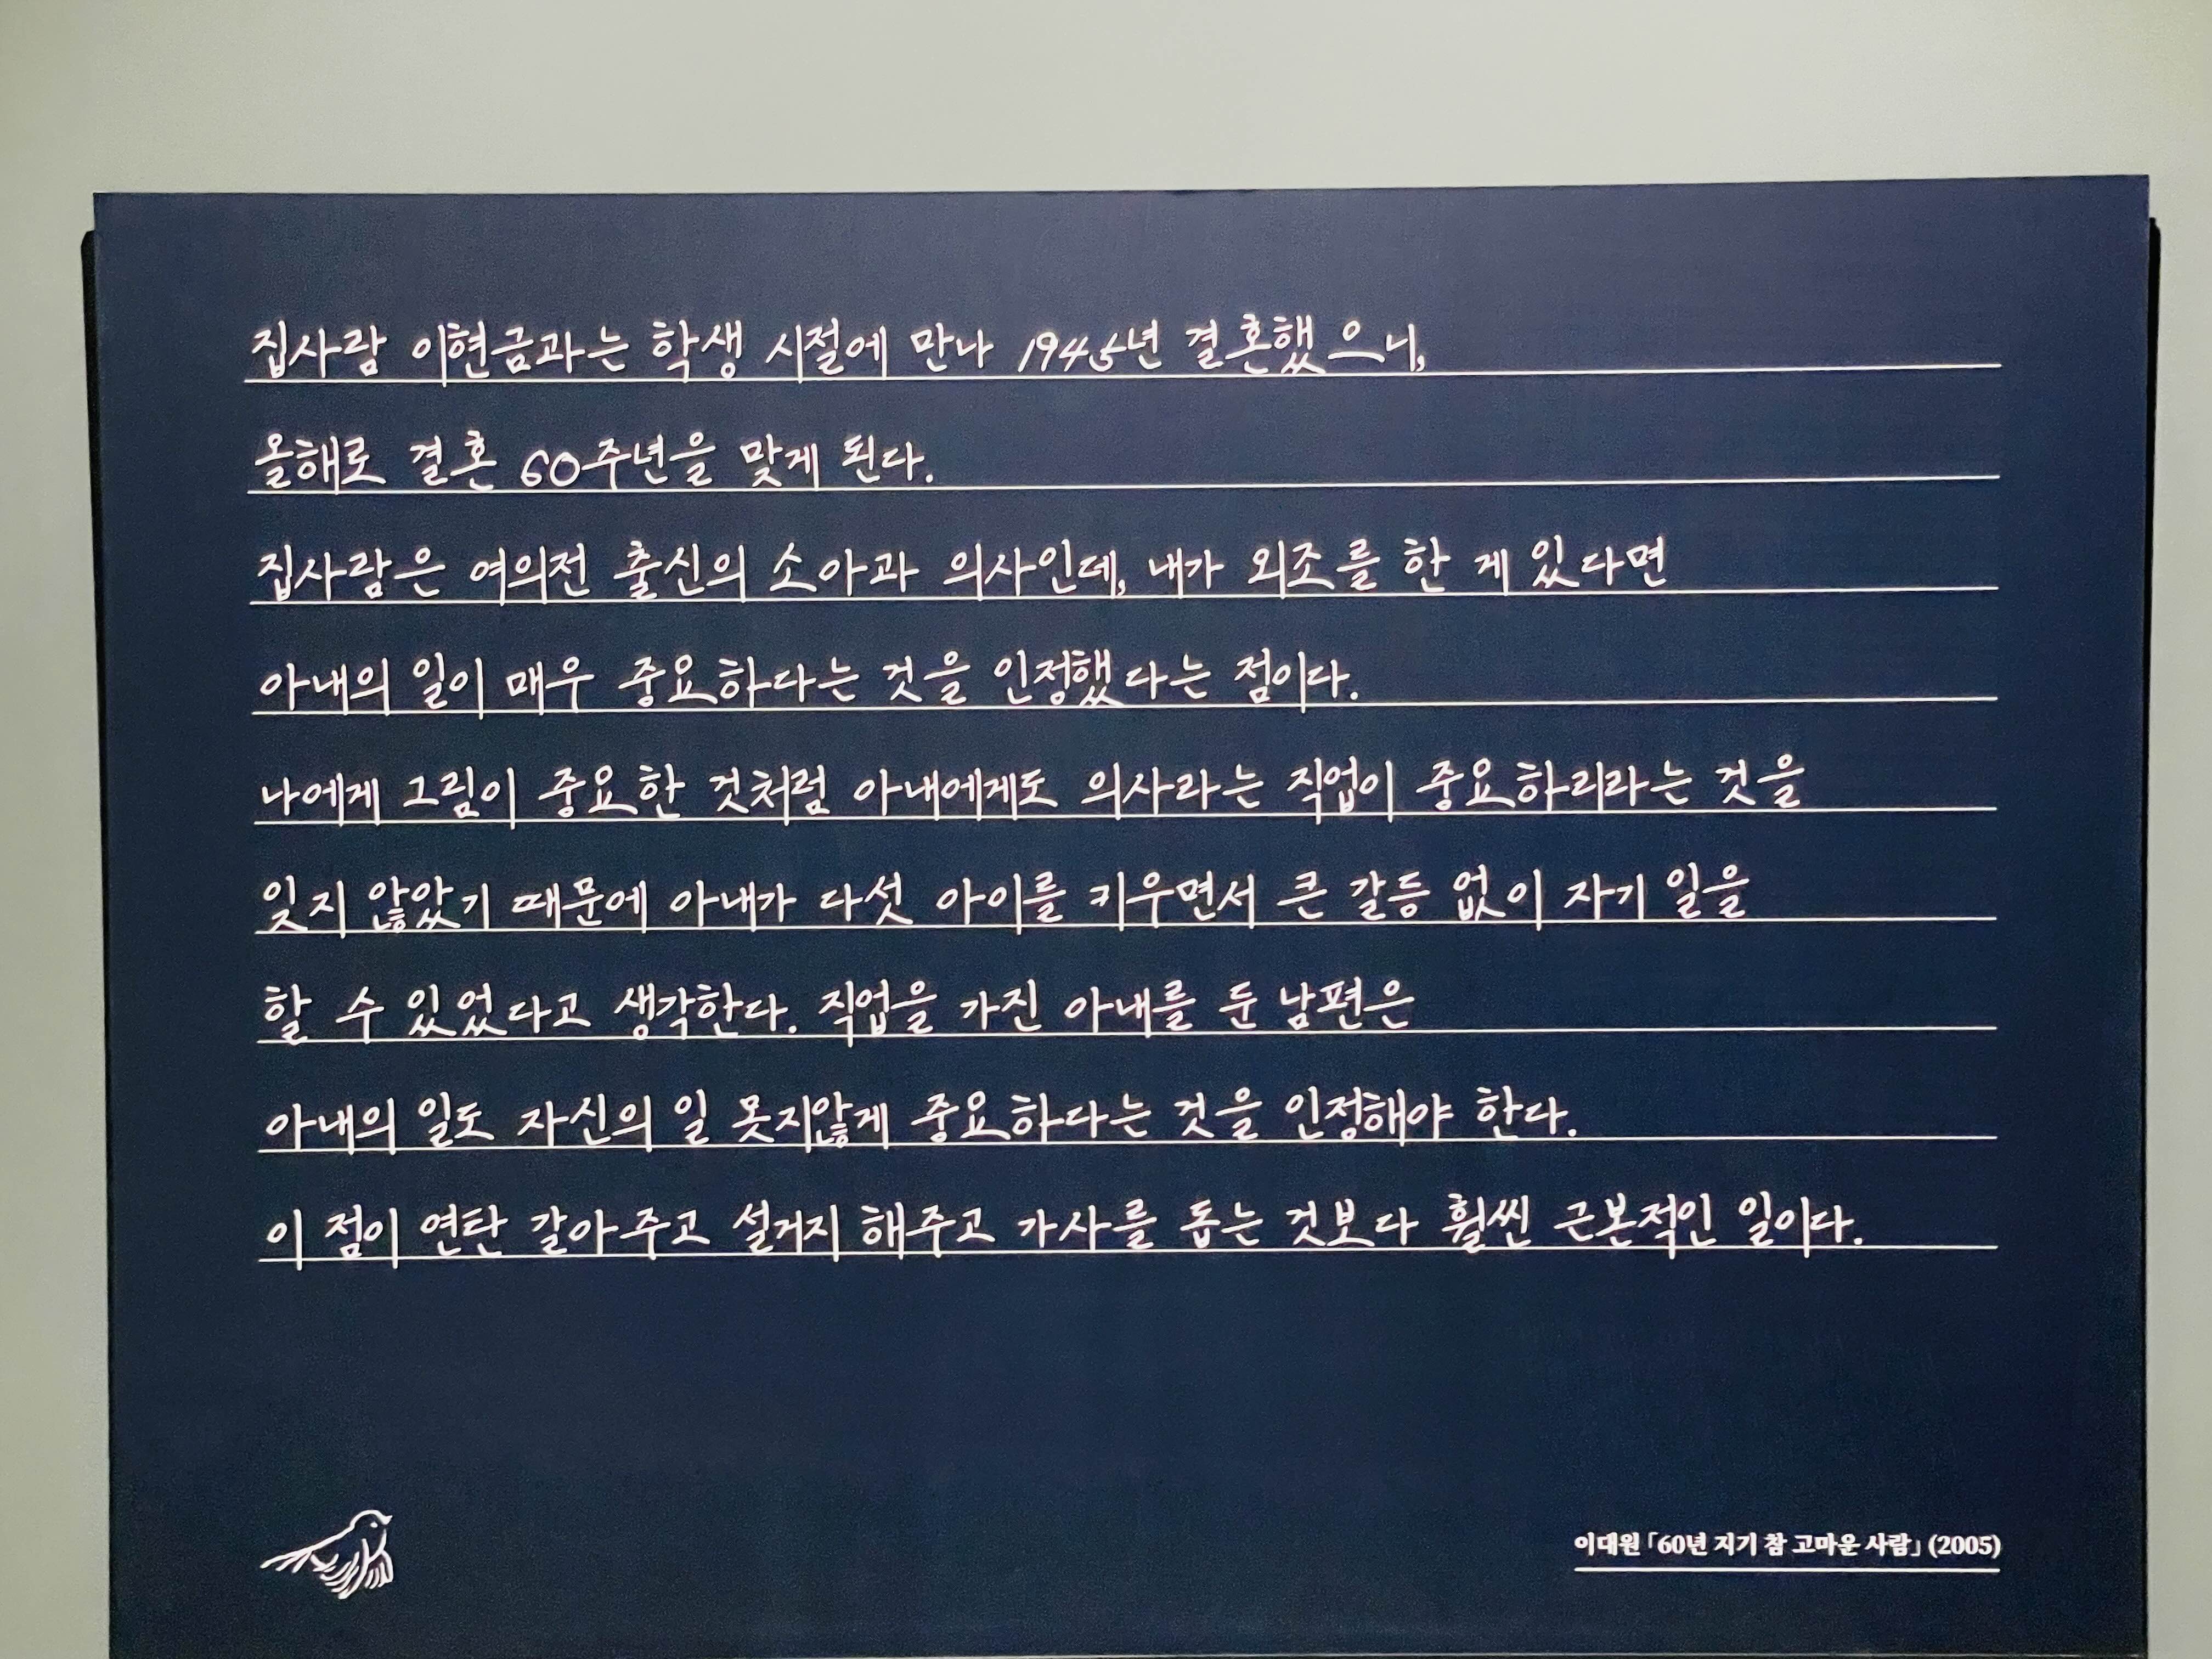 집사람 이현금과는 학생 시절에 만나 1945년 결혼했으니,
올해로 결혼 60주년을 맞게 된다.
집사람은 여의전 출신의 소아과 의사인데, 내가 외조를 한 게 있다면
아내의 일이 매우 중요하다는 것을 인정했다는 점이다.
나에게 그림이 중요한 것처럼 아내에게도 의사라는 직업이 중요하리라는 것을
잊지 않았기 때문에 아내가 다섯 아이를 키우면서 큰 갈등 없이 자기 일을
할 수 있었다고 생각한다. 직업을 가진 아내를 둔 남편은
아내의 일도 자신의 일 못지않게 중요하다는 것을 인정해야 한다.
이 점이 연탄 갈아주고 설거지 해주고 가사를 돕는 것보다 훨씬 근본적인 일이다.
이대원 「60년 지기 참 고마운 사람」 (2005)